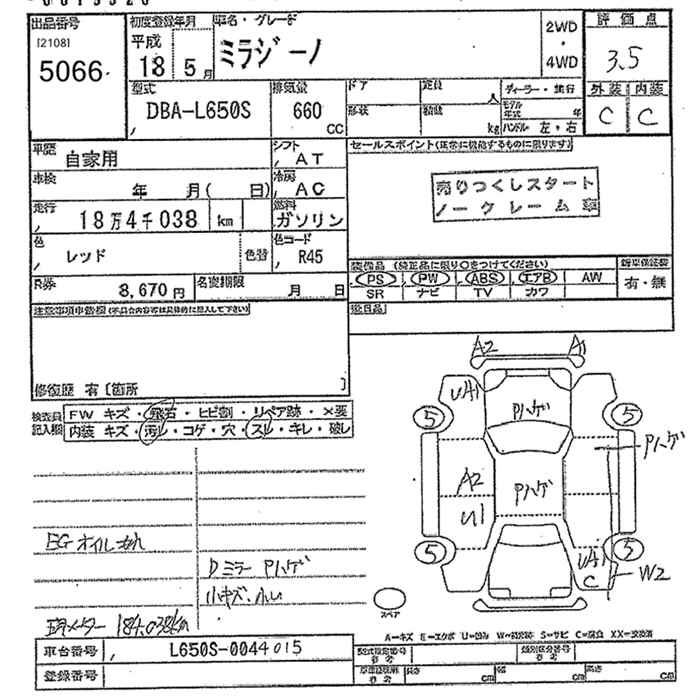 出品番号 [2108] 5066
初度登録年月 平成 18 5月
車名・グレード ミラジーノ
2WD・4WD
評価点 3.5
外装 内装
C C
型式 DBA-L650S
排気量 660 CC
ドア 定員 人
形状 積載 kg
ディーラー・並行
モデル年式 年
ハンドル 左・右
車歴 自家用
シフト AT
セールスポイント(正常に機能するものに限ります)
車検 年 月( 日)
冷房 AC
売りつくしスタート
ノークレーム車
走行 18万4千038 km
燃料 ガソリン
色 レッド 色替
色コード R45
装備品 (純正品に限り○をつけてください)
新車保証書
PS PW ABS エアB AW 有・無
SR ナビ TV カワ
R券 8,670円
名変期限 月 日
注意事項申告欄(不具合内容等は具体的に記入して下さい)
後日品
修復歴 有 [箇所 ]
検査員記入欄
FW キズ・飛石・ヒビ割・リペア跡・×要
内装 キズ・汚レ・コゲ・穴・スレ・キレ・破レ
A2 A1
UA1 Pハゲ
5 5
Pハゲ
A2 Pハゲ
U1
5 5
UA1
C W2
スペア
EGオイルもれ
Dミラー Pハゲ
小キズ・小凹
現メーター 184,038km
A=キズ E=エクボ U=凹み W=補修跡 S=サビ C=腐食 XX=交換済
車台番号 L650S-0044015
型式指定番号 類別区分番号
登録番号
長さ cm 幅 cm 高さ cm